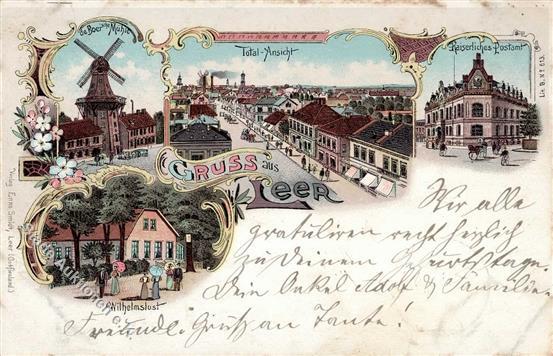 de Boer'sche Mühle
Total-Ansicht
Kaiserliches Postamt
Lit. B. No 613.
GRUSS aus
LEER
Wilhelmslust
Leer (Ostfriesland)
Wir alle
gratuliren recht herzlich
zu Deinem Geburtstage.
Dein Onkel Adolf & Familie
Freundl. Gruß an Tante!